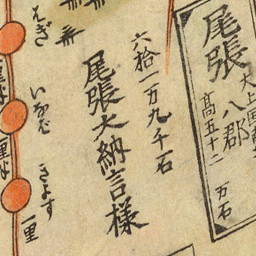 尾張 大上国
八郡
高五十二万石
六拾一万九千石
尾張大納言様
はぎ
いなば
きよす
一里